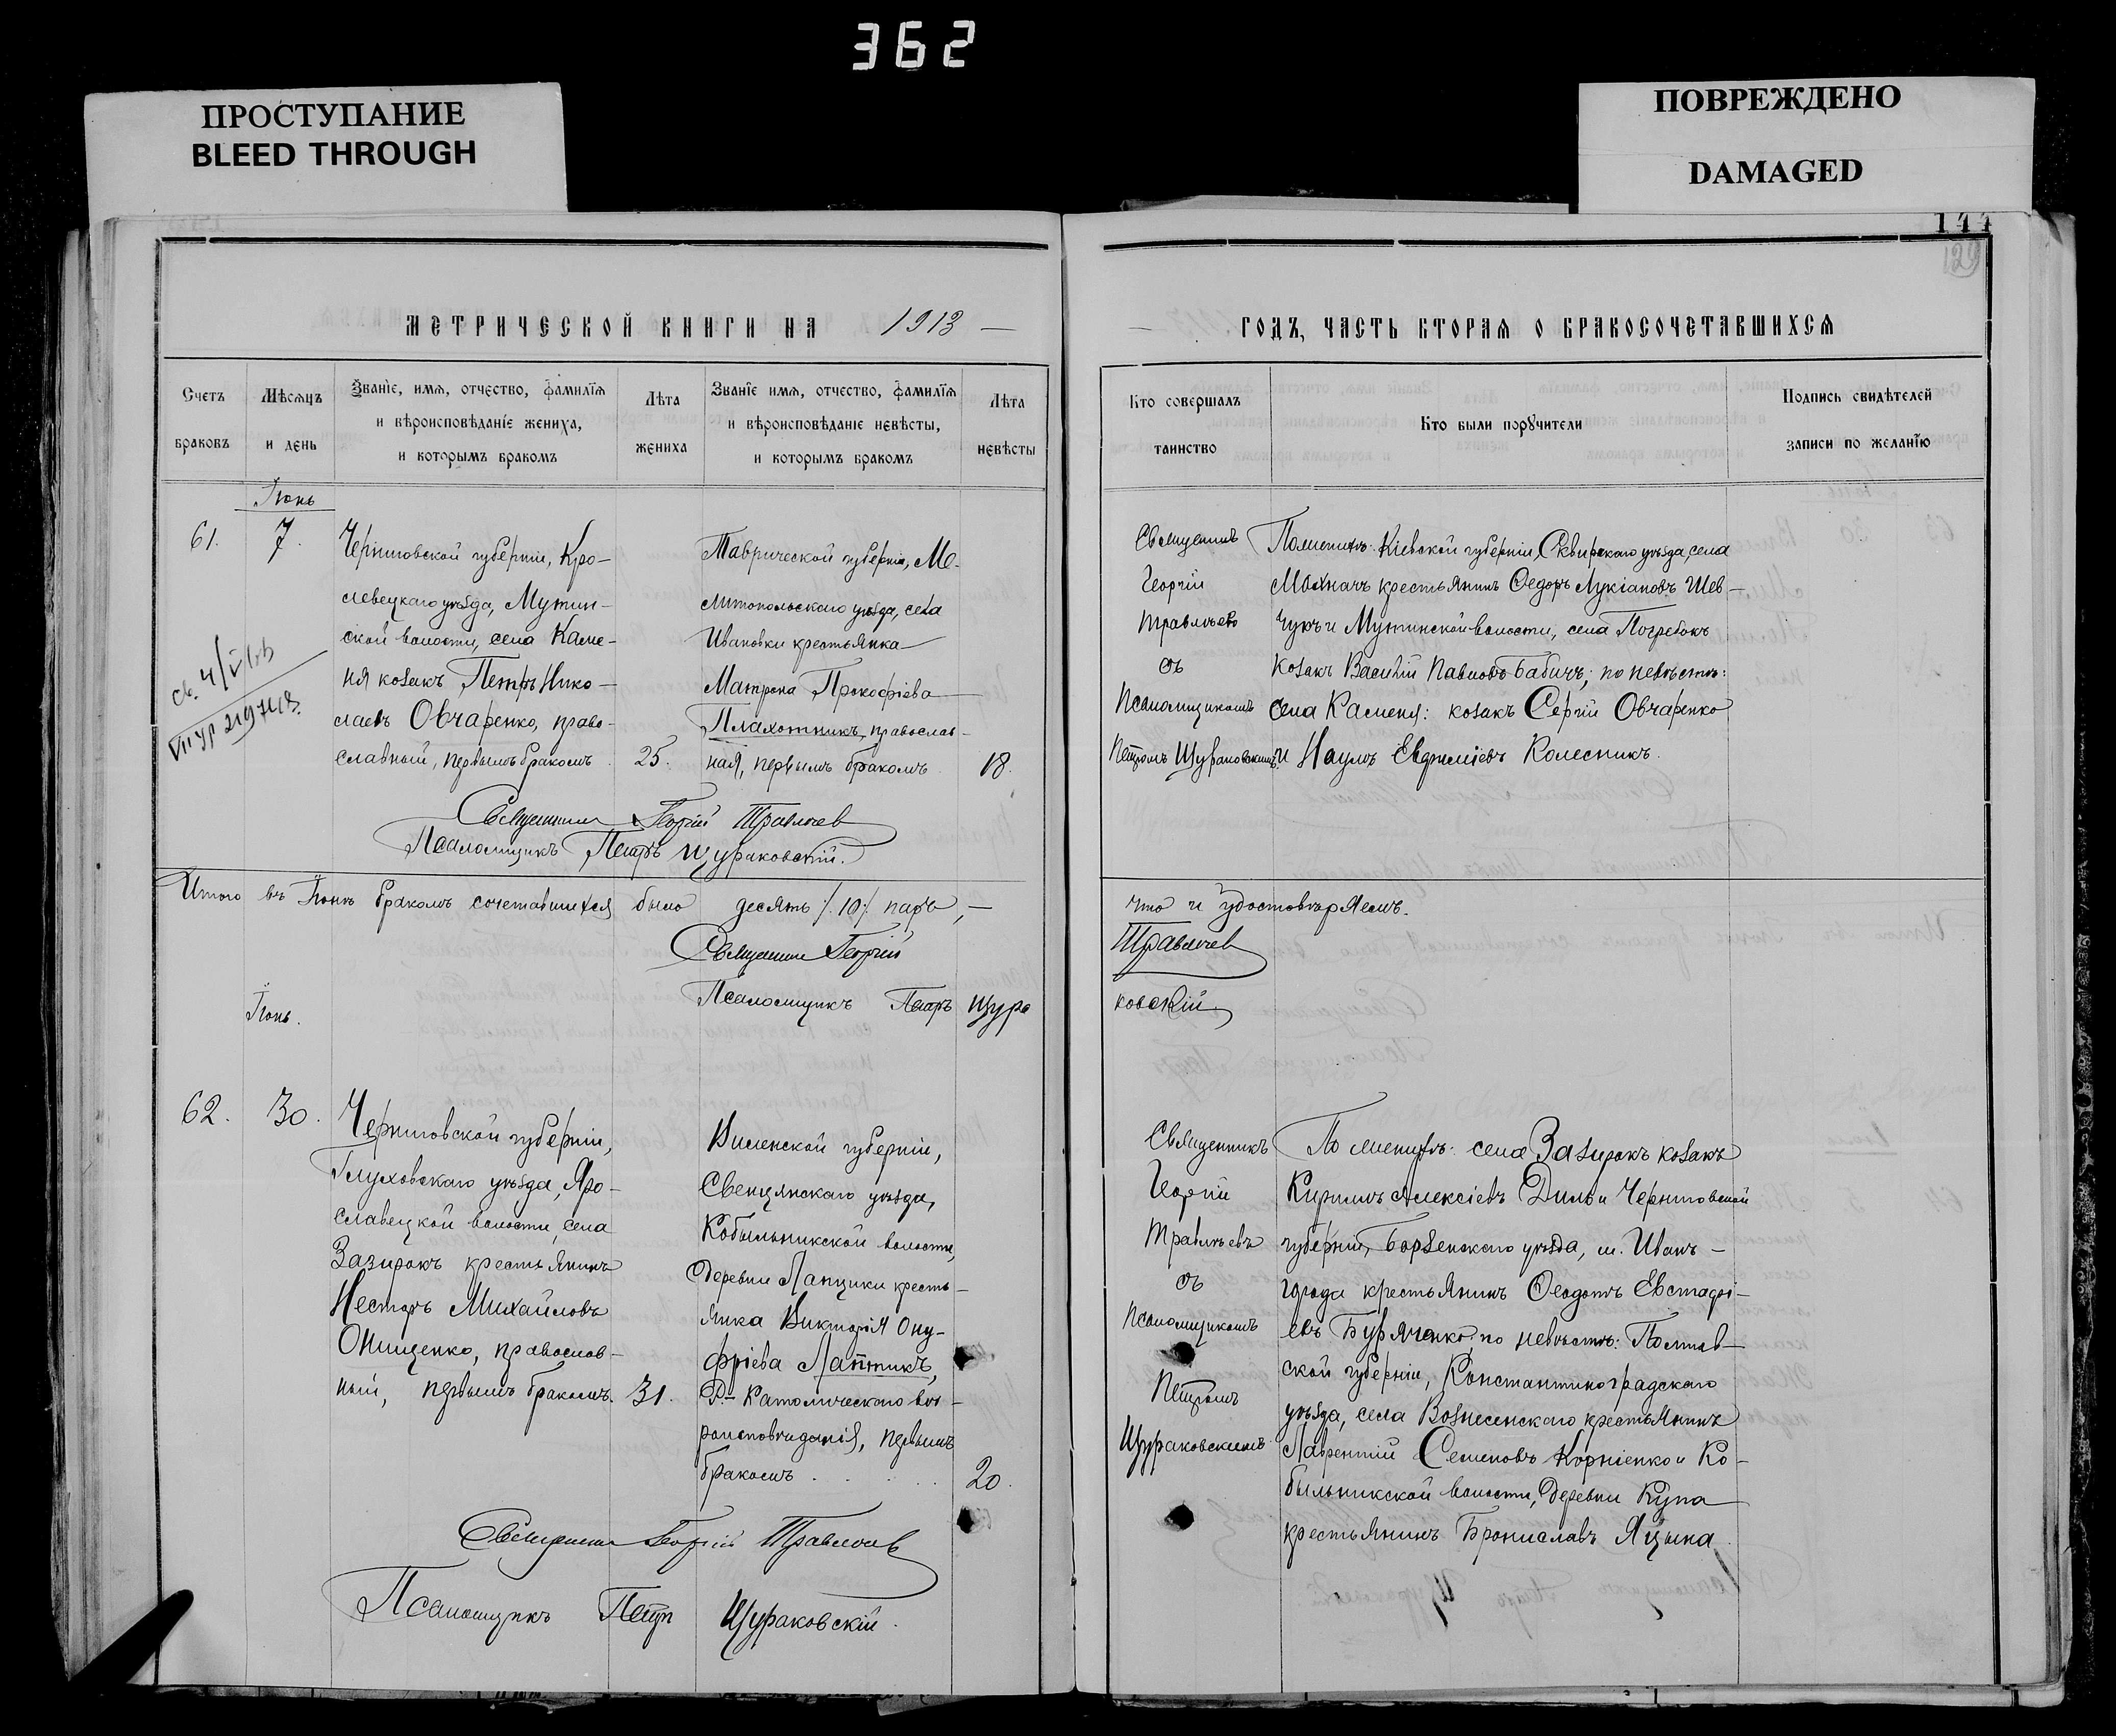 362
ПРОСТУПАНИЕ
BLEED THROUGH
ПОВРЕЖДЕНО
DAMAGED
144
129
МЕТРИЧЕСКОЙ КНИГИ НА 1913 —
Счетъ браковъ
Мѣсяцъ и день
Званіе, имя, отчество, фамилія и вѣроисповѣданіе жениха, и которымъ бракомъ
Лѣта жениха
Званіе имя, отчество, фамилія и вѣроисповѣданіе невѣсты, и которымъ бракомъ
Лѣта невѣсты
Іюнь
61.
7.
Черниговской губерніи, Кро-
левецкаго уѣзда, Мутин-
ской волости, села Каме-
ня козакъ Петръ Нико-
лаевъ Овчаренко, право-
славный, первымъ бракомъ
25.
Таврической губерніи, Ме-
литопольскаго уѣзда, села
Ивановки крестьянка
Матрона Прокофіева
Плахотникъ, православ-
ная, первымъ бракомъ
18.
Священникъ Георгій Травлѣев
Псаломщикъ Петръ Щураковскій.
Итого въ Іюнѣ бракомъ сочетавшихся было десять /.10/. паръ, —
Священник Георгій
Псаломщикъ Петръ Щура
Іюнь.
62.
30.
Черниговской губерніи,
Глуховскаго уѣзда, Яро-
славецкой волости, села
Зазирокъ крестьянинъ
Несторъ Михайловъ
Онищенко, православ-
ный, первымъ бракомъ.
31.
Виленской губерніи,
Свенцянскаго уѣзда,
Кобыльникской волости,
деревни Лапцики кресть-
янка Викторія Ону-
фріева Лаптикъ,
Р.-Католическаго вѣ-
роисповѣданія, первымъ
бракомъ
20.
Священник Георгій Травлѣев
Псаломщикъ Петр Щураковскій.
— ГОДЪ, ЧАСТЬ ВТОРАЯ О БРАКОСОЧЕТАВШИХСЯ
Кто совершалъ таинство
Кто были порꙋчители
Подпись свидѣтелей записи по желанію
Священникъ
Георгій
Травлѣевъ
съ
Псаломщикомъ
Петромъ Щураковскимъ
По женихѣ: Кіевской губерніи, Сквирскаго уѣзда, села
Махначъ крестьянинъ Ѳедоръ Лукіановъ Шев-
чукъ и Мутинской волости, села Погребокъ
козакъ Василій Павловъ Бабичъ; по невѣстѣ:
села Каменя: козакъ Сергій Овчаренко
и Наумъ Евфиміевъ Колесникъ.
что и удостовѣряемъ.
Травлѣев
ковскій
Священникъ
Георгій
Травлѣевъ
съ
Псаломщикомъ
Петромъ
Щураковскимъ
По женихѣ: села Зазирокъ козакъ
Кириллъ Алексіевъ Диль и Черниговской
губерніи, Борзенскаго уѣзда, м. Иванъ-
города крестьянинъ Ѳеодотъ Евстафі-
евъ Буряченко; по невѣстѣ: Полтав-
ской губерніи, Константиноградскаго
уѣзда, села Вознесенскаго крестьянинъ
Лаврентій Семеновъ Корніенко и Ко-
быльникской волости, деревни Купа
крестьянинъ Брониславъ Яцына